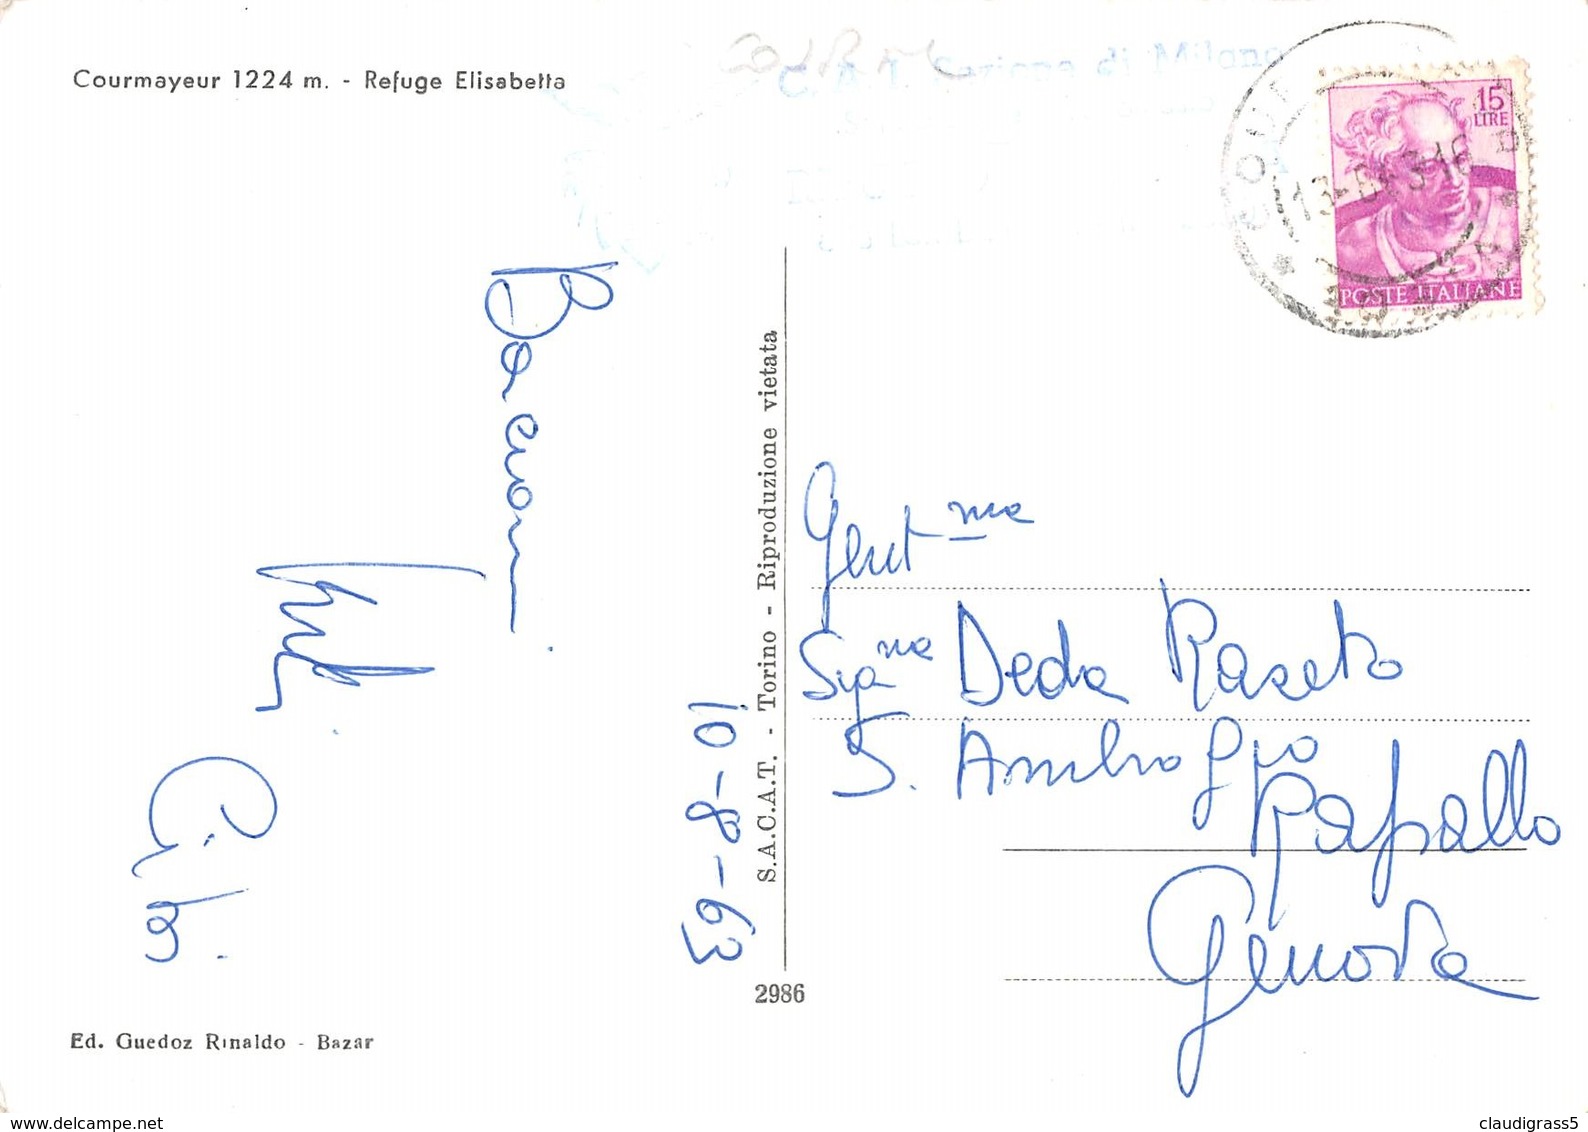 Courmayeur 1224 m. - Refuge Elisabetta
Sezione di Milano
15
LIRE
POSTE ITALIANE
Bacioni
10-8-63
S.A.C.A.T. - Torino - Riproduzione vietata
2986
Gent ma
Sig na Deda Raseto
S. Ambrogio
Rapallo
Genova
Ed. Guedoz Rinaldo - Bazar
www.delcampe.net
claudigrass5